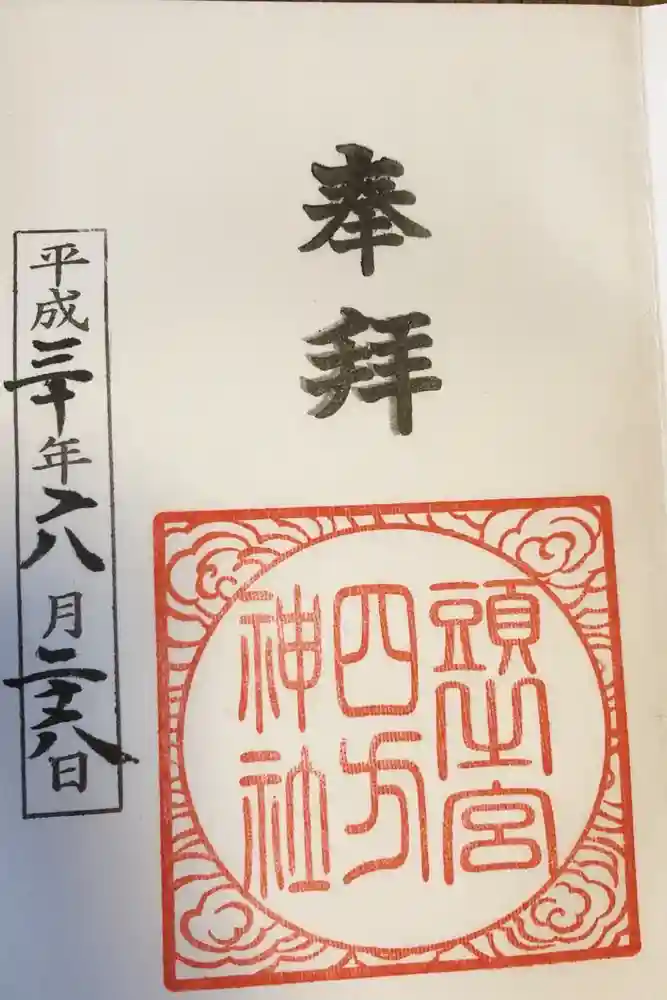 奉拝
頭之宮
四方
神社
平成三十年六月二十八日